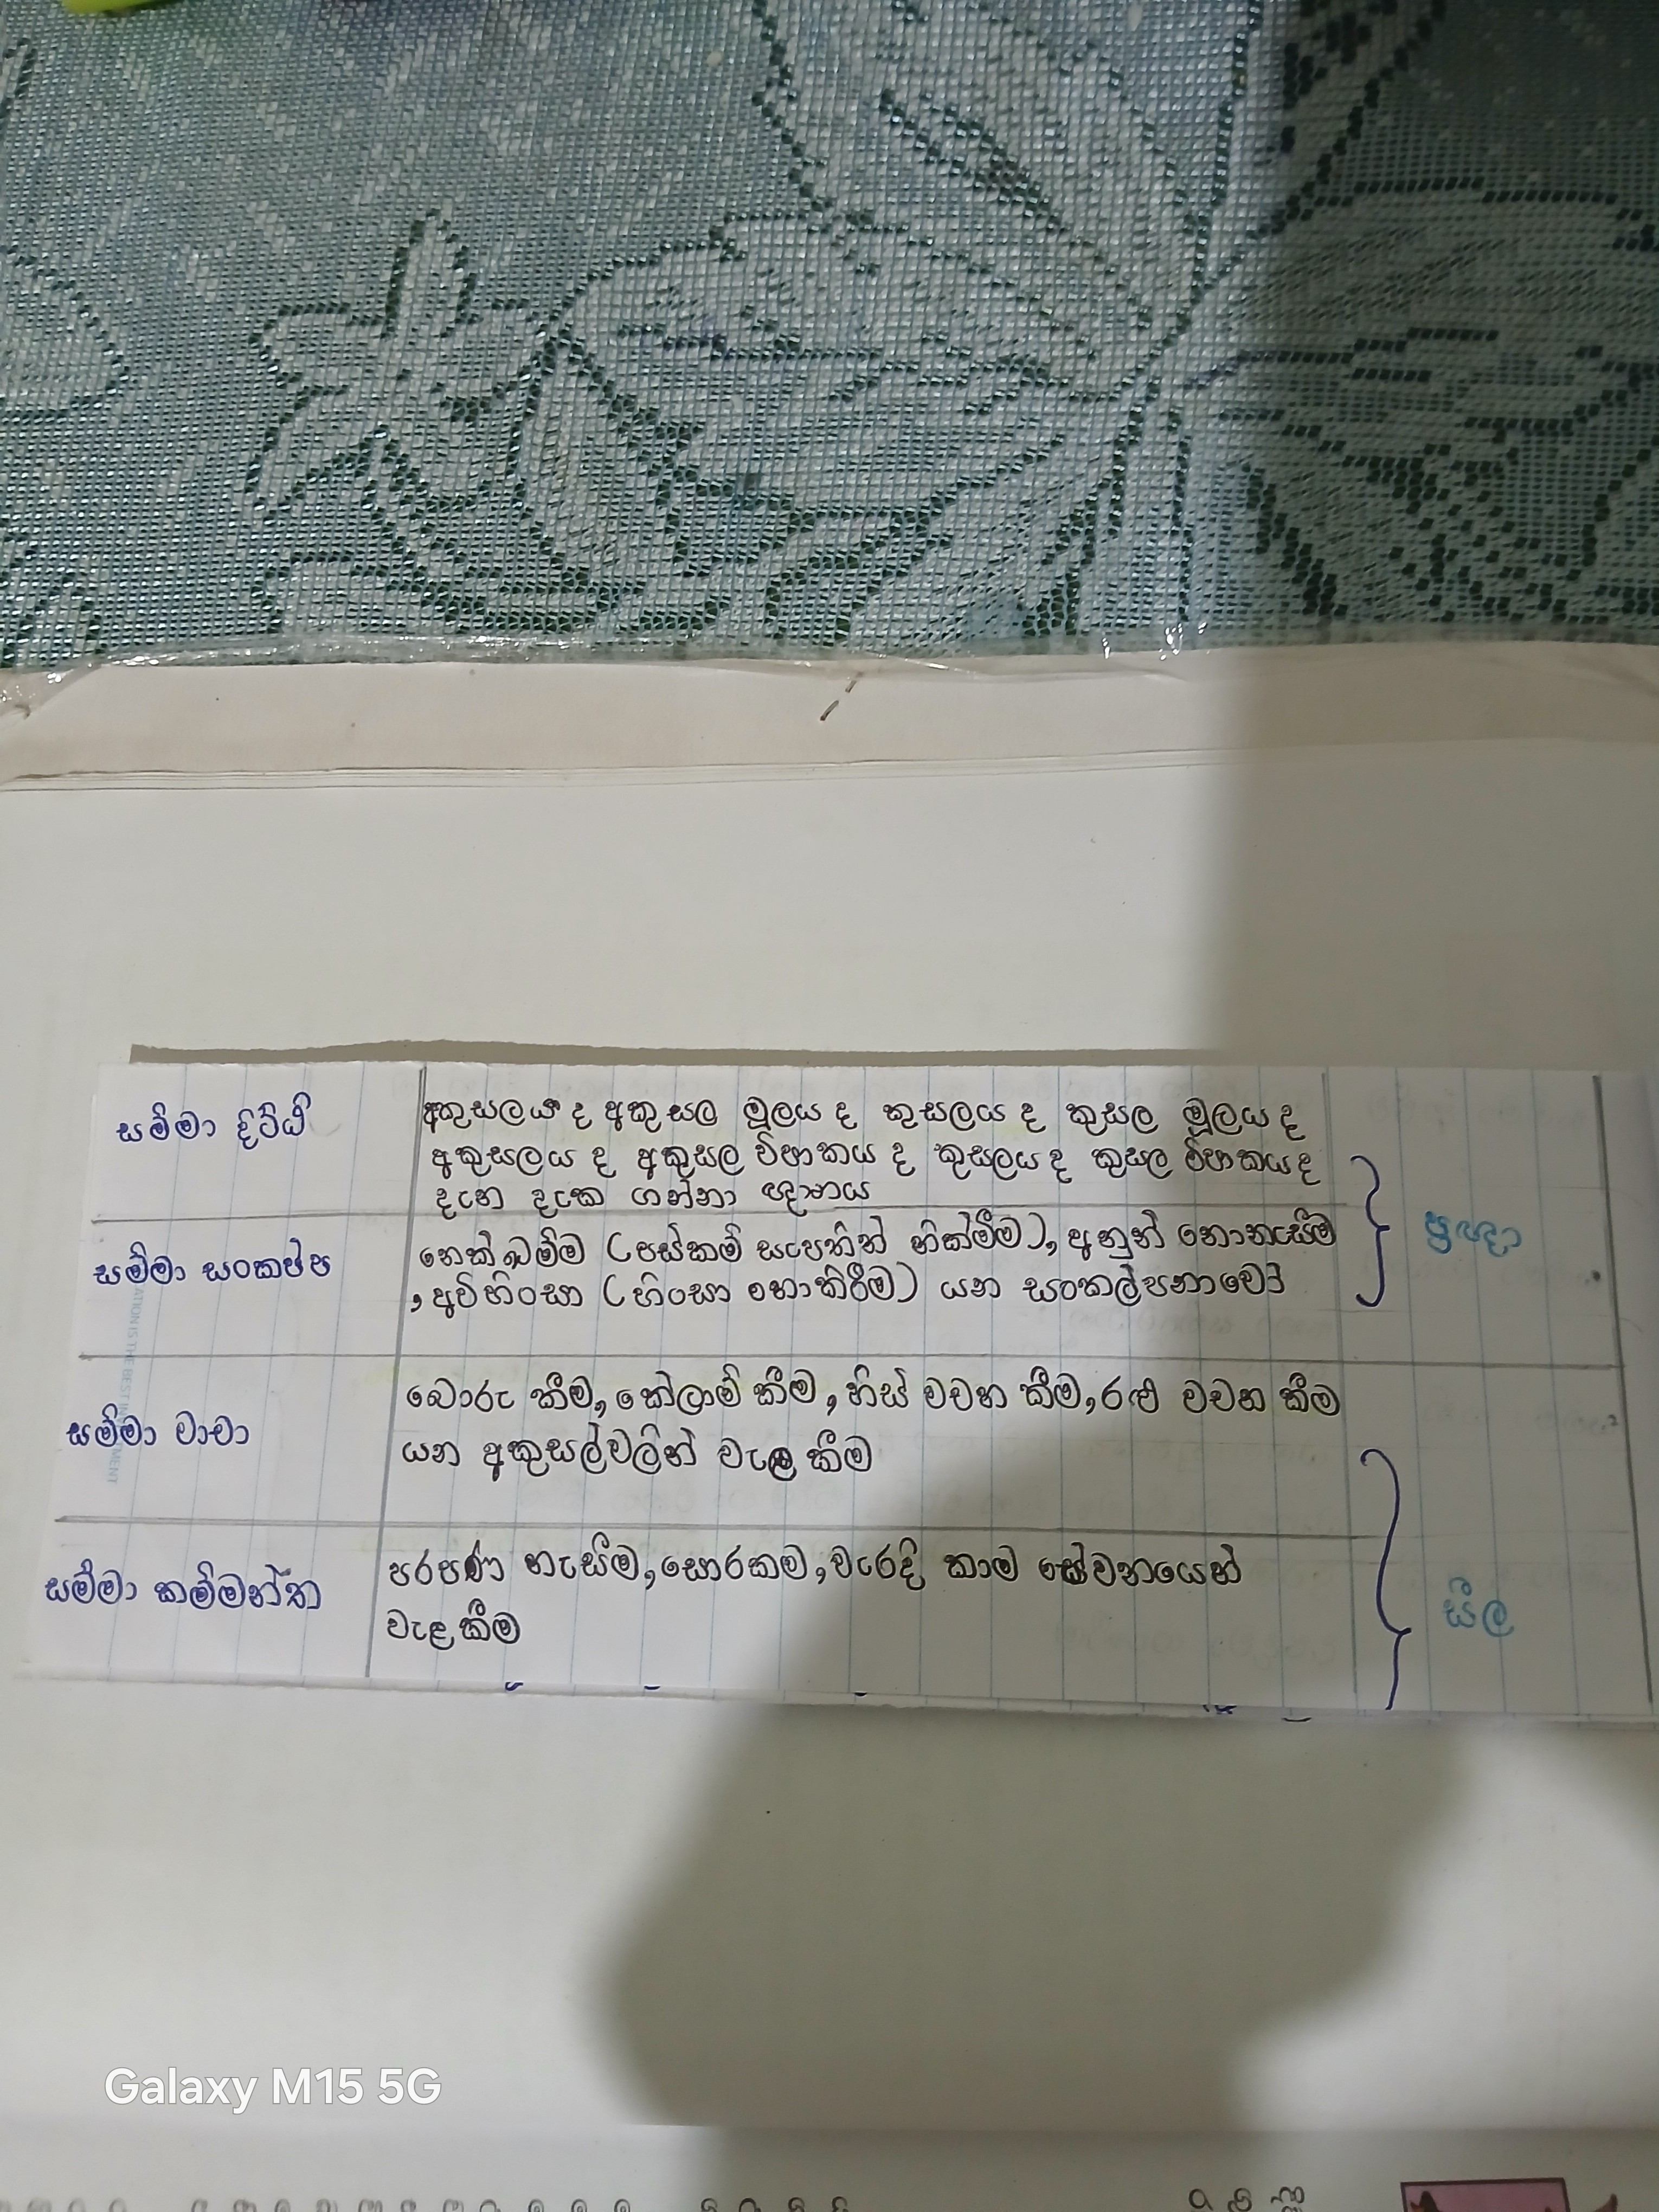 සම්මා දිට්ඨි
අකුසලය ද අකුසල මූලය ද කුසලය ද කුසල මූලය ද
අකුසලය ද අකුසල විපාකය ද කුසලය ද කුසල විපාකය ද
දැන දැක ගන්නා ඥානය
සම්මා සංකප්ප
නෙක්ඛම්ම (පස්කම් සැපතින් නික්මීම), අනුන් නොනැසීම
, අවිහිංසා (හිංසා නොකිරීම) යන සංකල්පනාවෝ
ප්‍රඥා
සම්මා වාචා
බොරු කීම, කේලාම් කීම, හිස් වචන කීම, රළු වචන කීම
යන අකුසල්වලින් වැලකීම
සම්මා කම්මන්ත
පරපණ නැසීම, සොරකම, වැරදි කාම සේවනයෙන්
වැළකීම
සීල
Galaxy M15 5G